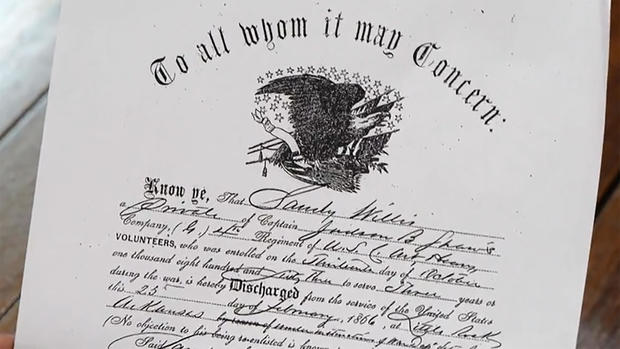 To all whom it may Concern:
Know ye, That Sandy Willis
a Private of Captain Judson B.
Company, (G,) 4th Regiment of U.S.C. Art Heavy
VOLUNTEERS, who was enrolled on the Thirteenth day of October
one thousand eight hundred and Sixty Three to serve Three years or
during the war, is hereby Discharged from the service of the United States
this 25 day of February, 1866, at Little Rock
Arkansas by reason of
(No objection to his being re-enlisted is known
Said